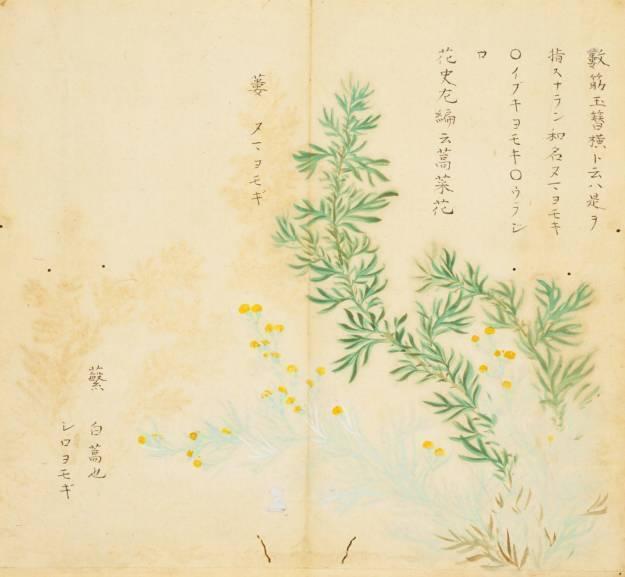 數筋玉簪横ト云ハ是ヲ
指スナラン和名ヌマヨモキ
〇イブキヨモキ〇ウラシ
ロ
花史左編云蒿菜花
蔞 ヌマヨモギ
蘩 白蒿也
シロヨモギ